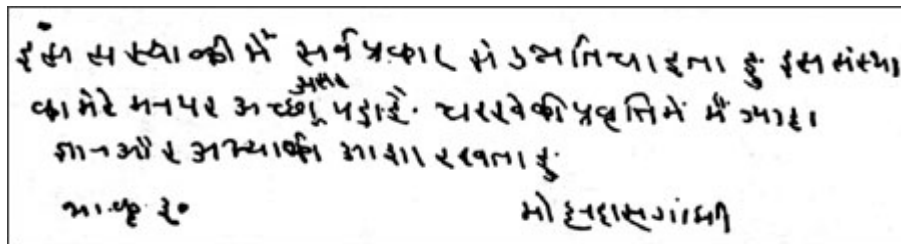 इस संस्थाकी मैं सर्व प्रकार से उन्नति चाहता हुं इस संस्था
का मेरे मनपर अच्छा असर पड़ा है. चरखेकी प्रवृत्तिमें मैं ज्यादा
ज्ञान और अभ्यासकी आशा रखता हुं.
मोहनदास गांधी